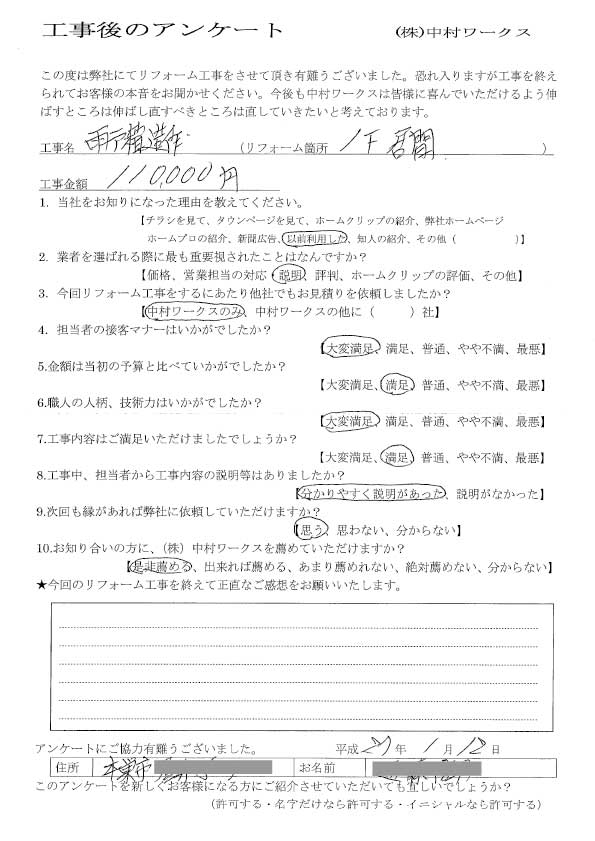 工事後のアンケート (株)中村ワークス
この度は弊社にてリフォーム工事をさせて頂き有難うございました。恐れ入りますが工事を終え
られてお客様の本音をお聞かせください。今後も中村ワークスは皆様に喜んでいただけるよう伸
ばすところは伸ばし直すべきところは直していきたいと考えております。
工事名 雨戸 造作 (リフォーム箇所 1F 居間 )
工事金額 110,000円
1. 当社をお知りになった理由を教えてください。
【チラシを見て、タウンページを見て、ホームクリップの紹介、弊社ホームページ
ホームプロの紹介、新聞広告、以前利用した、知人の紹介、その他( )】
2. 業者を選ばれる際に最も重要視されたことはなんですか?
【価格、営業担当の対応・説明、評判、ホームクリップの評価、その他】
3. 今回リフォーム工事をするにあたり他社でもお見積りを依頼しましたか?
【中村ワークスのみ、中村ワークスの他に( )社】
4. 担当者の接客マナーはいかがでしたか?
【大変満足、満足、普通、やや不満、最悪】
5.金額は当初の予算と比べていかがでしたか?
【大変満足、満足、普通、やや不満、最悪】
6.職人の人柄、技術力はいかがでしたか?
【大変満足、満足、普通、やや不満、最悪】
7.工事内容はご満足いただけましたでしょうか?
【大変満足、満足、普通、やや不満、最悪】
8.工事中、担当者から工事内容の説明等はありましたか?
【分かりやすく説明があった、説明がなかった】
9.次回も縁があれば弊社に依頼していただけますか?
【思う、思わない、分からない】
10.お知り合いの方に、(株)中村ワークスを薦めていただけますか?
【是非薦める、出来れば薦める、あまり薦めれない、絶対薦めない、分からない】
★今回のリフォーム工事を終えて正直なご感想をお願いいたします。
アンケートにご協力有難うございました。 平成 21 年 1 月 12 日
住所 本巣市 お名前
このアンケートを新しくお客様になる方にご紹介させていただいても宜しいでしょうか?
(許可する・名字だけなら許可する・イニシャルなら許可する)